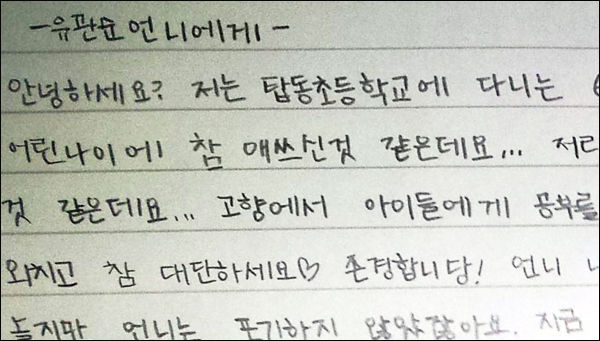 -유관순 언니에게-
안녕하세요? 저는 탑동초등학교에 다니는
어린나이에 참 애쓰신것 같은데요...
것 같은데요... 고향에서 아이들에게 공부를
외치고 참 대단하세요♡ 존경합니당! 언니
언니는 포기하지 않았잖아요. 지금